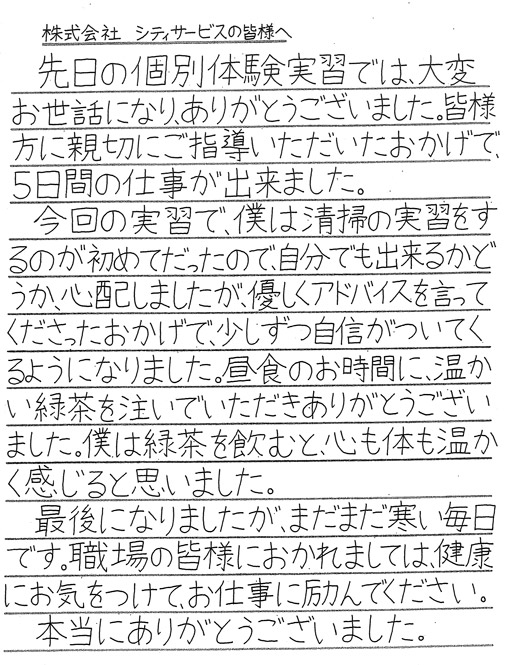 株式会社 シティサービスの皆様へ
先日の個別体験実習では、大変
お世話になり、ありがとうございました。皆様
方に親切にご指導いただいたおかげで、
5日間の仕事が出来ました。
今回の実習で、僕は清掃の実習をす
るのが初めてだったので、自分でも出来るかど
うか、心配しましたが、優しくアドバイスを言って
くださったおかげで、少しずつ自信がついてく
るようになりました。昼食のお時間に、温か
い緑茶を注いでいただきありがとうござい
ました。僕は緑茶を飲むと、心も体も温か
く感じると思いました。
最後になりましたが、まだまだ寒い毎日
です。職場の皆様におかれましては、健康
にお気をつけて、お仕事に励んでください。
本当にありがとうございました。